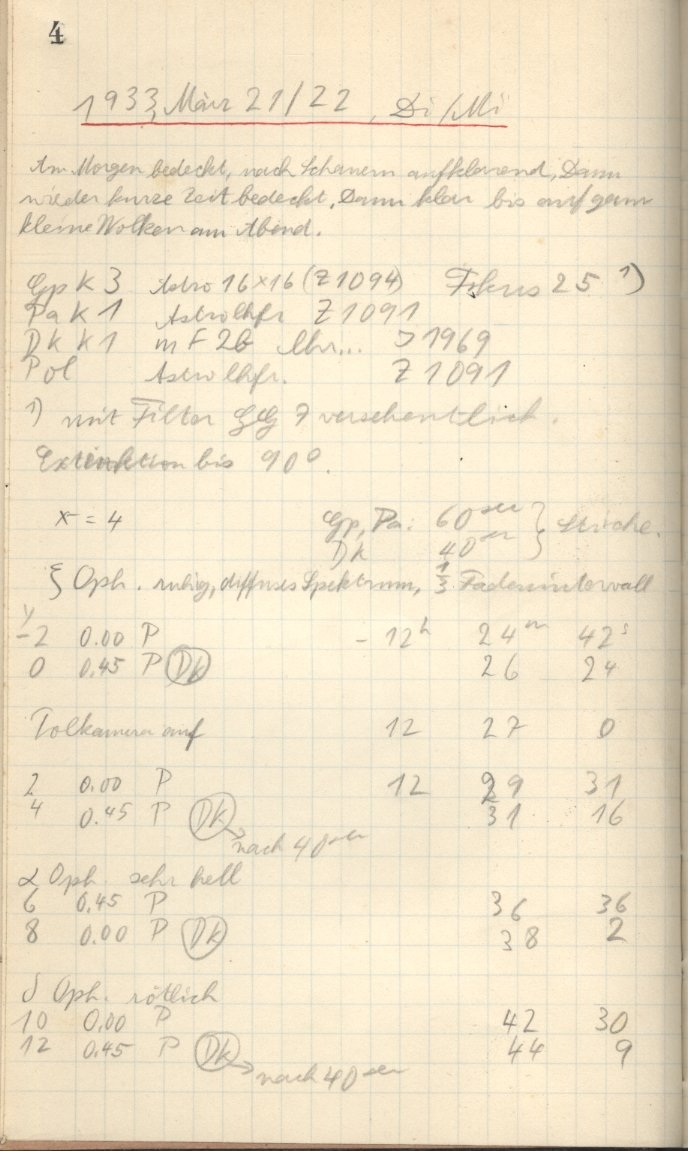 4
1933, März 21/22, Di/Mi
Am Morgen bedeckt, nach Schauern aufklarend, Dann
wieder kurze Zeit bedeckt, Dann klar bis auf ganz
kleine Wolken am Abend.
Gp K3 Astro 16×16 (Z1094) Fokus 25 1)
Pa K1 Astro Z1091
Dk K1 m F2b Uhr... J1969
Pol Astro Z1091
1) mit Filter GG 7 versehentlich.
Extinktion bis 90°.
x = 4 Gp, Pa: 60 sec } Striche.
Dk 40 sec
ξ Oph. ruhig, diffuses Spektrum, 1/3 Fadenintervall
y
-2 0.00 P - 12h 24m 42s
0 0.45 P Dk 26 24
Polkamera auf 12 27 0
2 0.00 P 12 29 31
4 0.45 P Dk 31 16
nach 40 sec
α Oph. sehr hell
6 0.45 P 36 36
8 0.00 P Dk 38 2
δ Oph. rötlich
10 0.00 P 42 30
12 0.45 P Dk 44 9
nach 40 sec